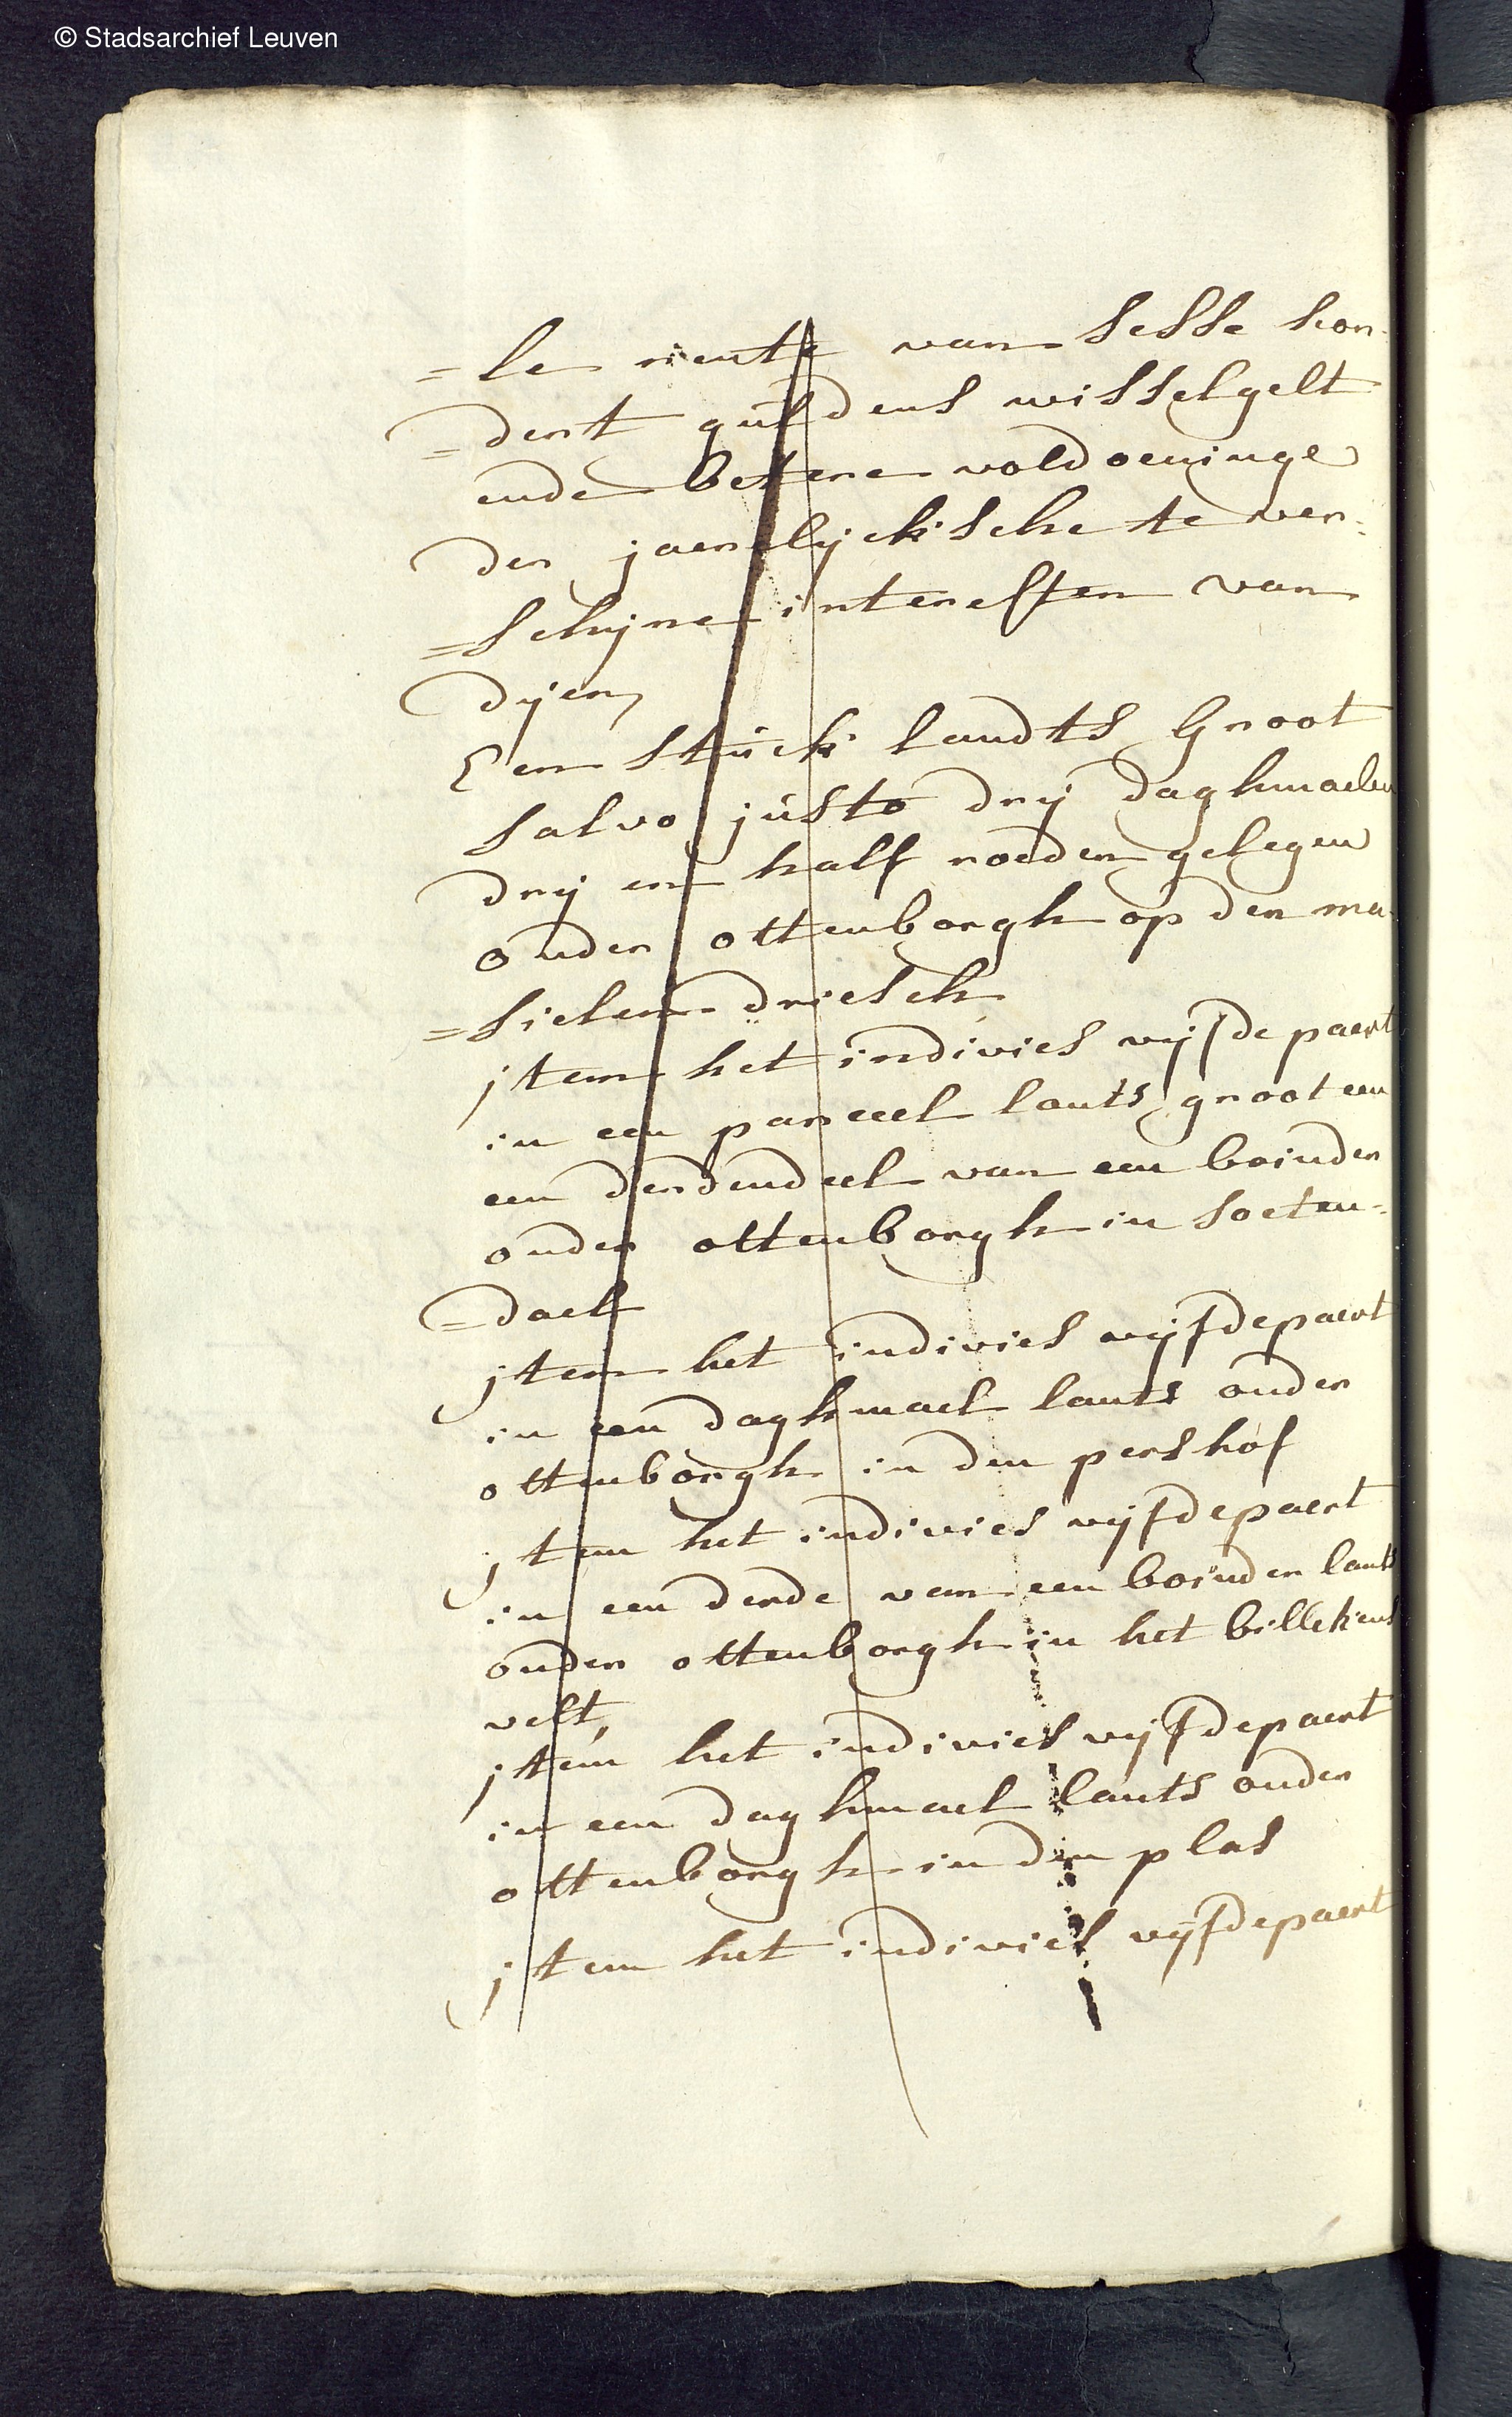 © Stadsarchief Leuven
=le rente van sesse hon-
=dert guldens wisselgelt
ende betere voldoeninge
der jaerelijcksche te ver-
=schijne interesten van
dijen,
Een stuck landts Groot
salvo justo drij daghmaelen
drij en half roeden gelegen
onder ottenborgh op den ma-
=sielen driesch
jtem het indivies vijfde paert
in een parceel lants groot een
een derdendeel van een boinder
onder ottenborgh in soeten-
=dael
jtem het indivies vijfdepaert
in een daghmael lants onder
ottenborgh in den pershof
jtem het indivies vijfdepaert
in een derde van een boinder lants
onder ottenborgh in het billekens
velt,
jtem het indivies vijfdepaert
in een daghmael lants onder
ottenborgh in den plas
jtem het indivies vijfdepaert